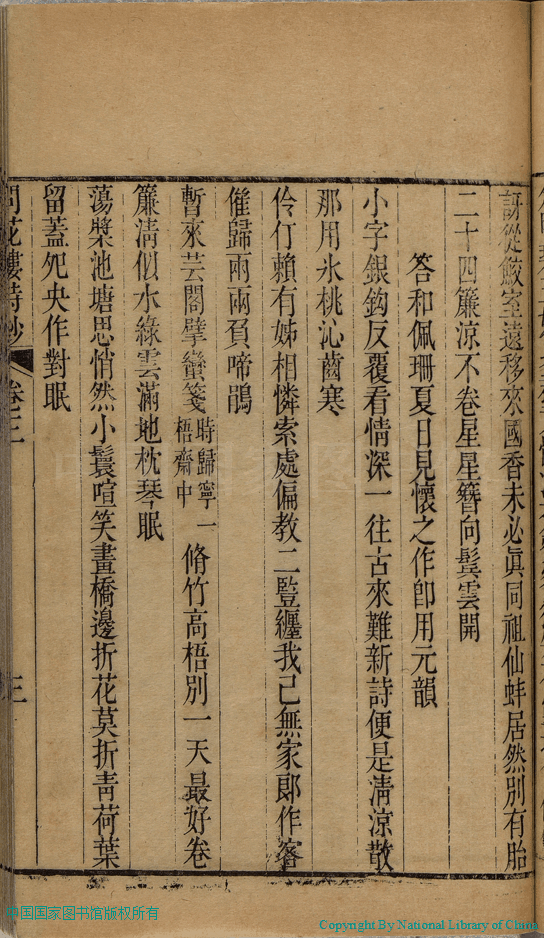 訝從鮫室遠移來國香未必眞同祖仙蚌居然別有胎
二十四簾凉不卷星星簪向鬂雲開
答和佩珊夏日見懷之作卽用元韻
小字銀鈎反覆看情深一往古來難新詩便是淸凉散
那用氷桃沁齒寒
伶仃賴有姊相憐索處偏教二豎纏我已無家郞作客
催歸雨兩負啼鵑
暫來芸閣擘蠻箋時歸寧一梧齋中脩竹高梧別一天最好卷
簾淸似水綠雲滿地枕琴眠
蕩槳池塘思悄然小鬟喧笑畫橋邊折花莫折靑荷葉
留蓋夗央作對眠
問花樓詩鈔 卷三 三
中国国家图书馆版权所有
Copyright By National Library of China